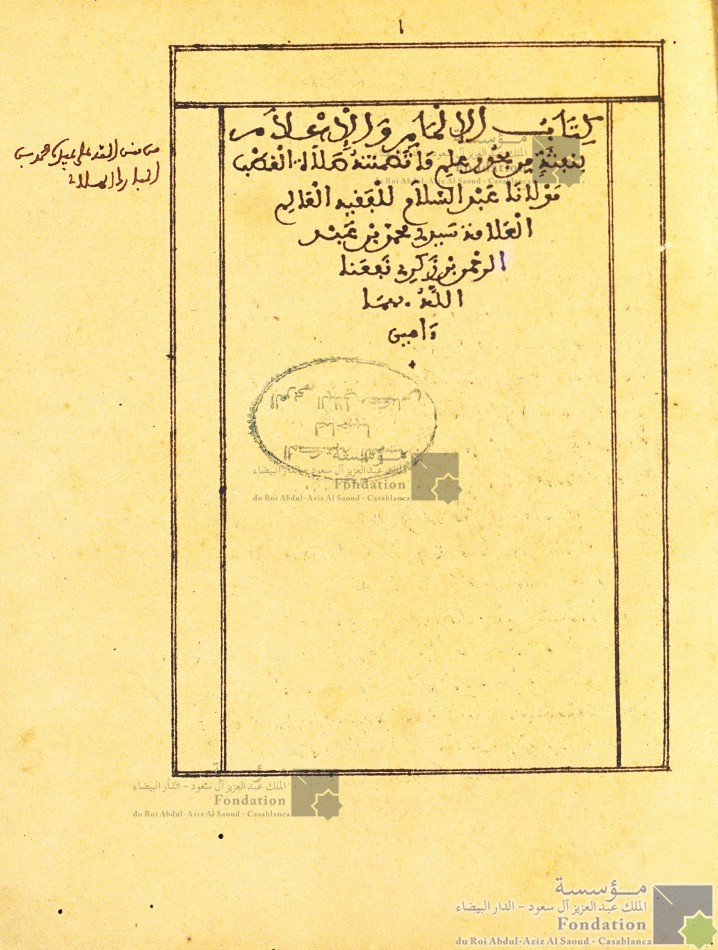 ١
كتاب الإلهام والإعلام
بنفثة من بحور علم ما تضمنته صلاة القطب
مولانا عبد السلام للفقيه العالم
العلامة سيدي محمد بن عبد
الرحمن بن زكري نفعنا
الله بهما
ءامين
من من الله على عبده محمد بن
مؤسسة
الملك عبد العزيز آل سعود - الدار البيضاء
Fondation
du Roi Abdul-Aziz Al Saoud - Casablanca
مؤسسة
الملك عبد العزيز آل سعود - الدار البيضاء
Fondation
du Roi Abdul-Aziz Al Saoud - Casablanca
مؤسسة
الملك عبد العزيز آل سعود - الدار البيضاء
Fondation
du Roi Abdul-Aziz Al Saoud - Casablanca